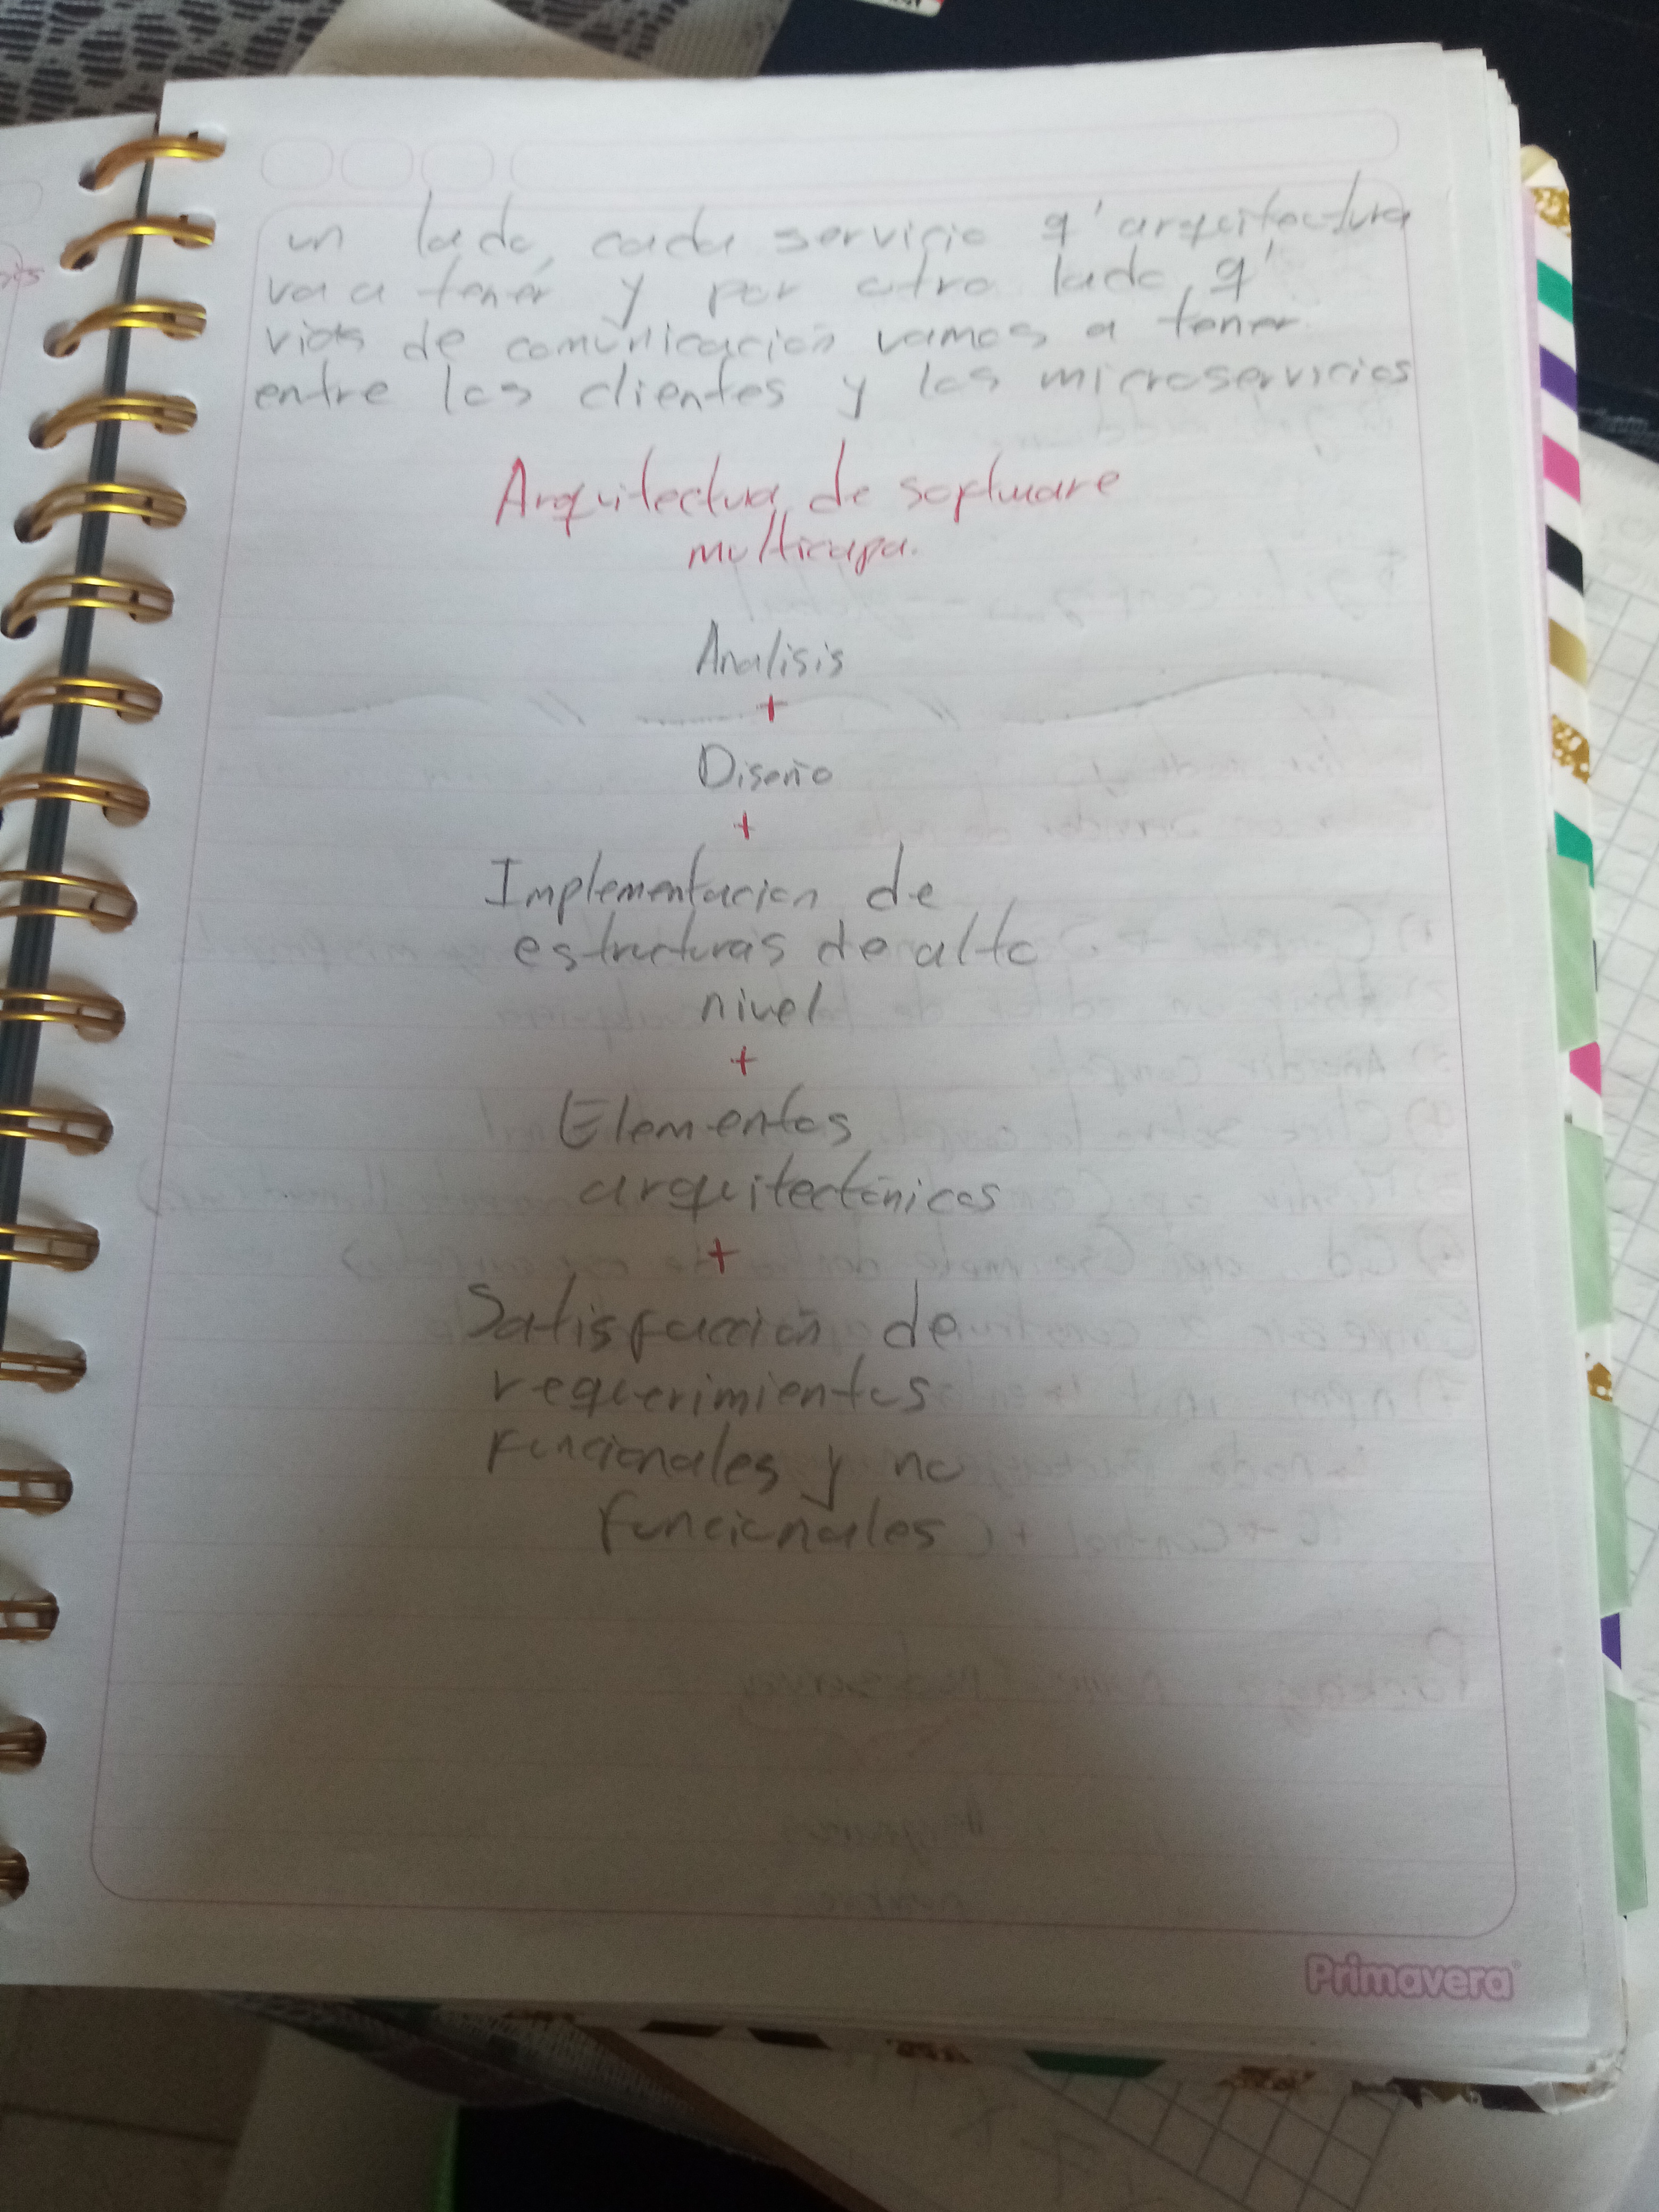 un lado, cada servicio q' arquitectura
va a tener y por otro lado, q'
vias de comunicación vamos a tener
entre los clientes y los microservicios
Arquitectura de software
multicapa.
Analisis
+
Diseño
+
Implementacion de
estructuras de alto
nivel
+
Elementos
arquitectónicos
+
Satisfacción de
requerimientos
funcionales y no
funcionales
Primavera